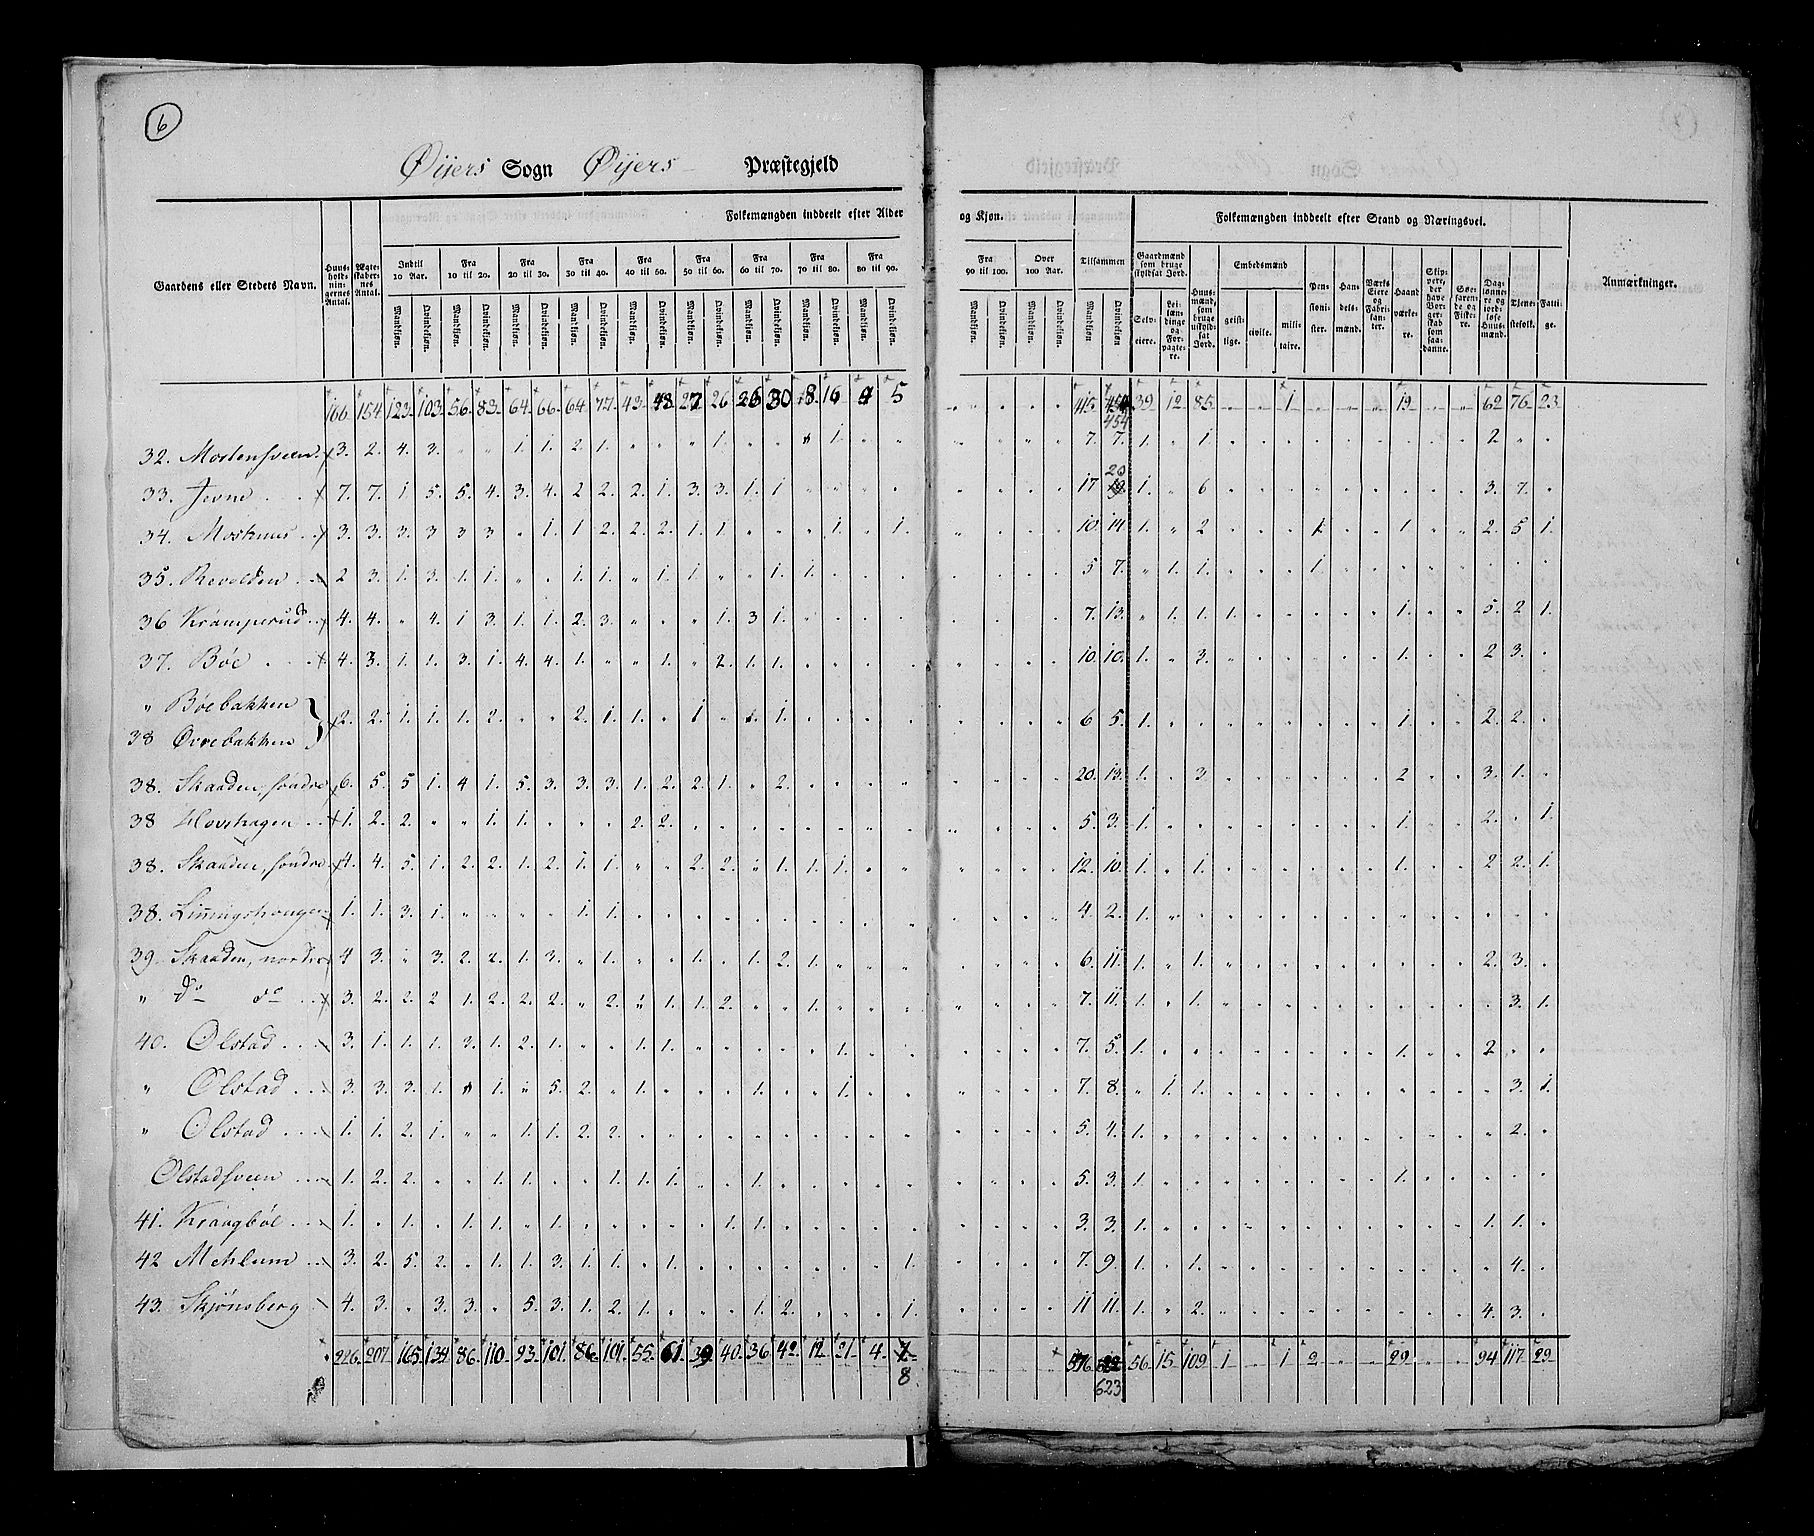 6
Øijers Sogn Øijers Præstegjeld
Gaardens eller Stedets Navn. Huus-holdningernes Antal. Ægteskabernes Antal. Folkemængden inddeelt efter Alder og Kjøn. Tilsammen Folkemængden inddeelt efter Stand og Næringsvei. Anmærkninger.
Indtil 10 Aar. Fra 10 til 20. Fra 20 til 30. Fra 30 til 40. Fra 40 til 50. Fra 50 til 60. Fra 60 til 70. Fra 70 til 80. Fra 80 til 90. Fra 90 til 100. Over 100 Aar.
Gaardmænd som bruge skyldsat Jord. Selveiere. Leilændinge og Forpagtere. Huusmænd, som bruge uskyldsat Jord. Embedsmænd geistlige. civile. militaire. Pensionister. Handelsmænd. Værks Eiere og Fabrikanter. Haandværkere. Skippere, der have Borgerskab som saadanne. Søefarende og Fiskere. Daglønnere og jordløse Huusmænd. Tjenestefolk. Fattige.
Mandkjøn. Qvindekjøn.
166 154 123 103 56 83 64 66 64 77 43 48 27 26 26 30 8 16 4 5 415 454 39 12 85 1 19 62 76 23
454
32. Mostensveen 3. 2. 4. 3. " " 1. 1. 2. 1. " " " 1. " " " 1. " " 7. 7. 1. " 1. 2
33. Jevne 7. 7. 1 5. 5. 4. 3. 4. 2 2. 2. 1. 3. 3. 1. 1 17 20 1. " 6 3. 7.
34. Moshuus 3. 3. 3. 3 3 3 " 1. 1 2. 2. 2. 1. 1. " " " 1 " 1. 10. 14. 1. " 2 1. 1. 2. 5 1.
35. Revolden 2 3. 1. 3. 1. 1. " " 1. 1. " 1. 1. " " 1. 1. 5 7. " 1. 1. 1.
36 Kramperud 4. 4. " 4. 1 3. 1. 1. 2. 3. " " " 1. 3 1. 7. 13. " 1. 1. 1. 1. 5. 2 1.
37. Bøe 4. 3. 1. 1. 3. 1. 4. 4. 1. " " 1. " 2. 1. 1. 10. 10. 1. " 3. 1. 2 3.
" Bøebakken
38 Øvrebakken 2. 2. 1. 1. 1. 2. " " 2. 1. 1. " 1 " 1. 1. 6 5. 1. 1. 2. 2.
38. Skaaden, søndre 6. 5. 5 1. 4 1. 5 3. 3. 3. 1. 2. 2. 1. " 2. 20. 13. 1. " 3 2 3. 1.
38 Hovshagen 1. 2. 2. " " 1. 1. " " " 2. 2. 5. 3. 1. 1. 2. " 1.
38. Skaaden, søndre 4. 4. 5 1. 2. 2. 1. 2. 1. 1. " " 2. 2. " 1. 1. 1. 12. 10. 1. " 1. 1. 2 2. 1.
38. 1. 1. 3. 1. " " " " 1. 1. 4. 2. 1.
39. Skaaden, nordre 4 3. " 3. 2. 2. 1. 3. " 1. " " 1. " 1. 2. 1. 6. 11. 1. " 1. 2. 3.
" do do 3. 2. 2. 2 1. 2. 2. 2. " 2. " 1. 1. 2. " " 1. 7. 11. 1. " 1. 3. 1.
40. Olstad 3. 1. 1. 1. 3. 1. 2. 1. " " 1. 1. " " " " " 1. 7. 5. 1. 1. 2
" Olstad 3. 3. 3. 1. 1. " 5. 2. " 1. " " " 1. " " 1. 7. 8. " 1. 1. 3. 1.
" Olstad 1. 1. 2. 1. " " 1. 1. 2. 2. 5. 4. 1. 2.
Olstadsveen 1. 2. 2. " " 1. 1. " " 1. 1. 1. " " 1. 5. 3. 1. 1.
41. Kraagbøl 1. " 1. " 1. 1. " 1. " " " " " 1. 1. 3. 3. 1. 1. 1.
42 Mehlum 3. 2. 5. 2. " 1. 1. 3. 1. 1. " 1. 1. 7. 9. 1. " 1. 4.
43. Skjønsberg 4. 3. " 3. 3. " 5. 3. 1. 2. 1. " " " 1. 2. 1. 11 11. 1. " 2. 4. 3.
226. 207. 165. 134 86. 110. 93. 101. 86. 101. 55. 61. 39 40. 36 42. 12. 21. 4. 7 576 622 56 15 109 1 1 2 29 94 117 29
8 623